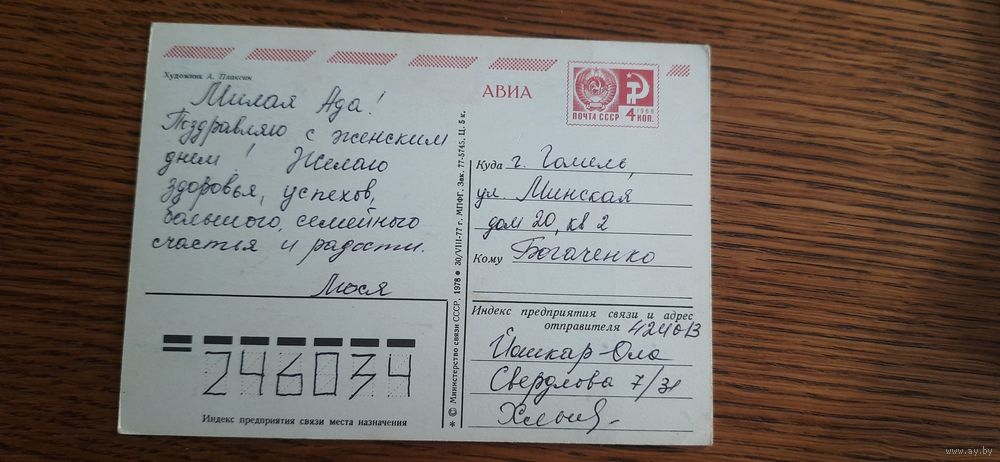 Художник А. Плаксин
Милая Ада!
Поздравляю с женским
днем! Желаю
здоровья, успехов,
большого, семейного
счастья и радости.
Люся
246034
Индекс предприятия связи места назначения
* © Министерство связи СССР. 1978 * 30/VIII-77 г. МПФГ. Зак. 77-5745. Ц. 5 к.
АВИА
1966
ПОЧТА СССР 4 КОП.
Куда г. Гомель,
ул. Минская
дом 20, кв 2
Кому Богаченко
Индекс предприятия связи и адрес
отправителя 424013
Йошкар-Ола
Свердлова 7/31
www.ay.by